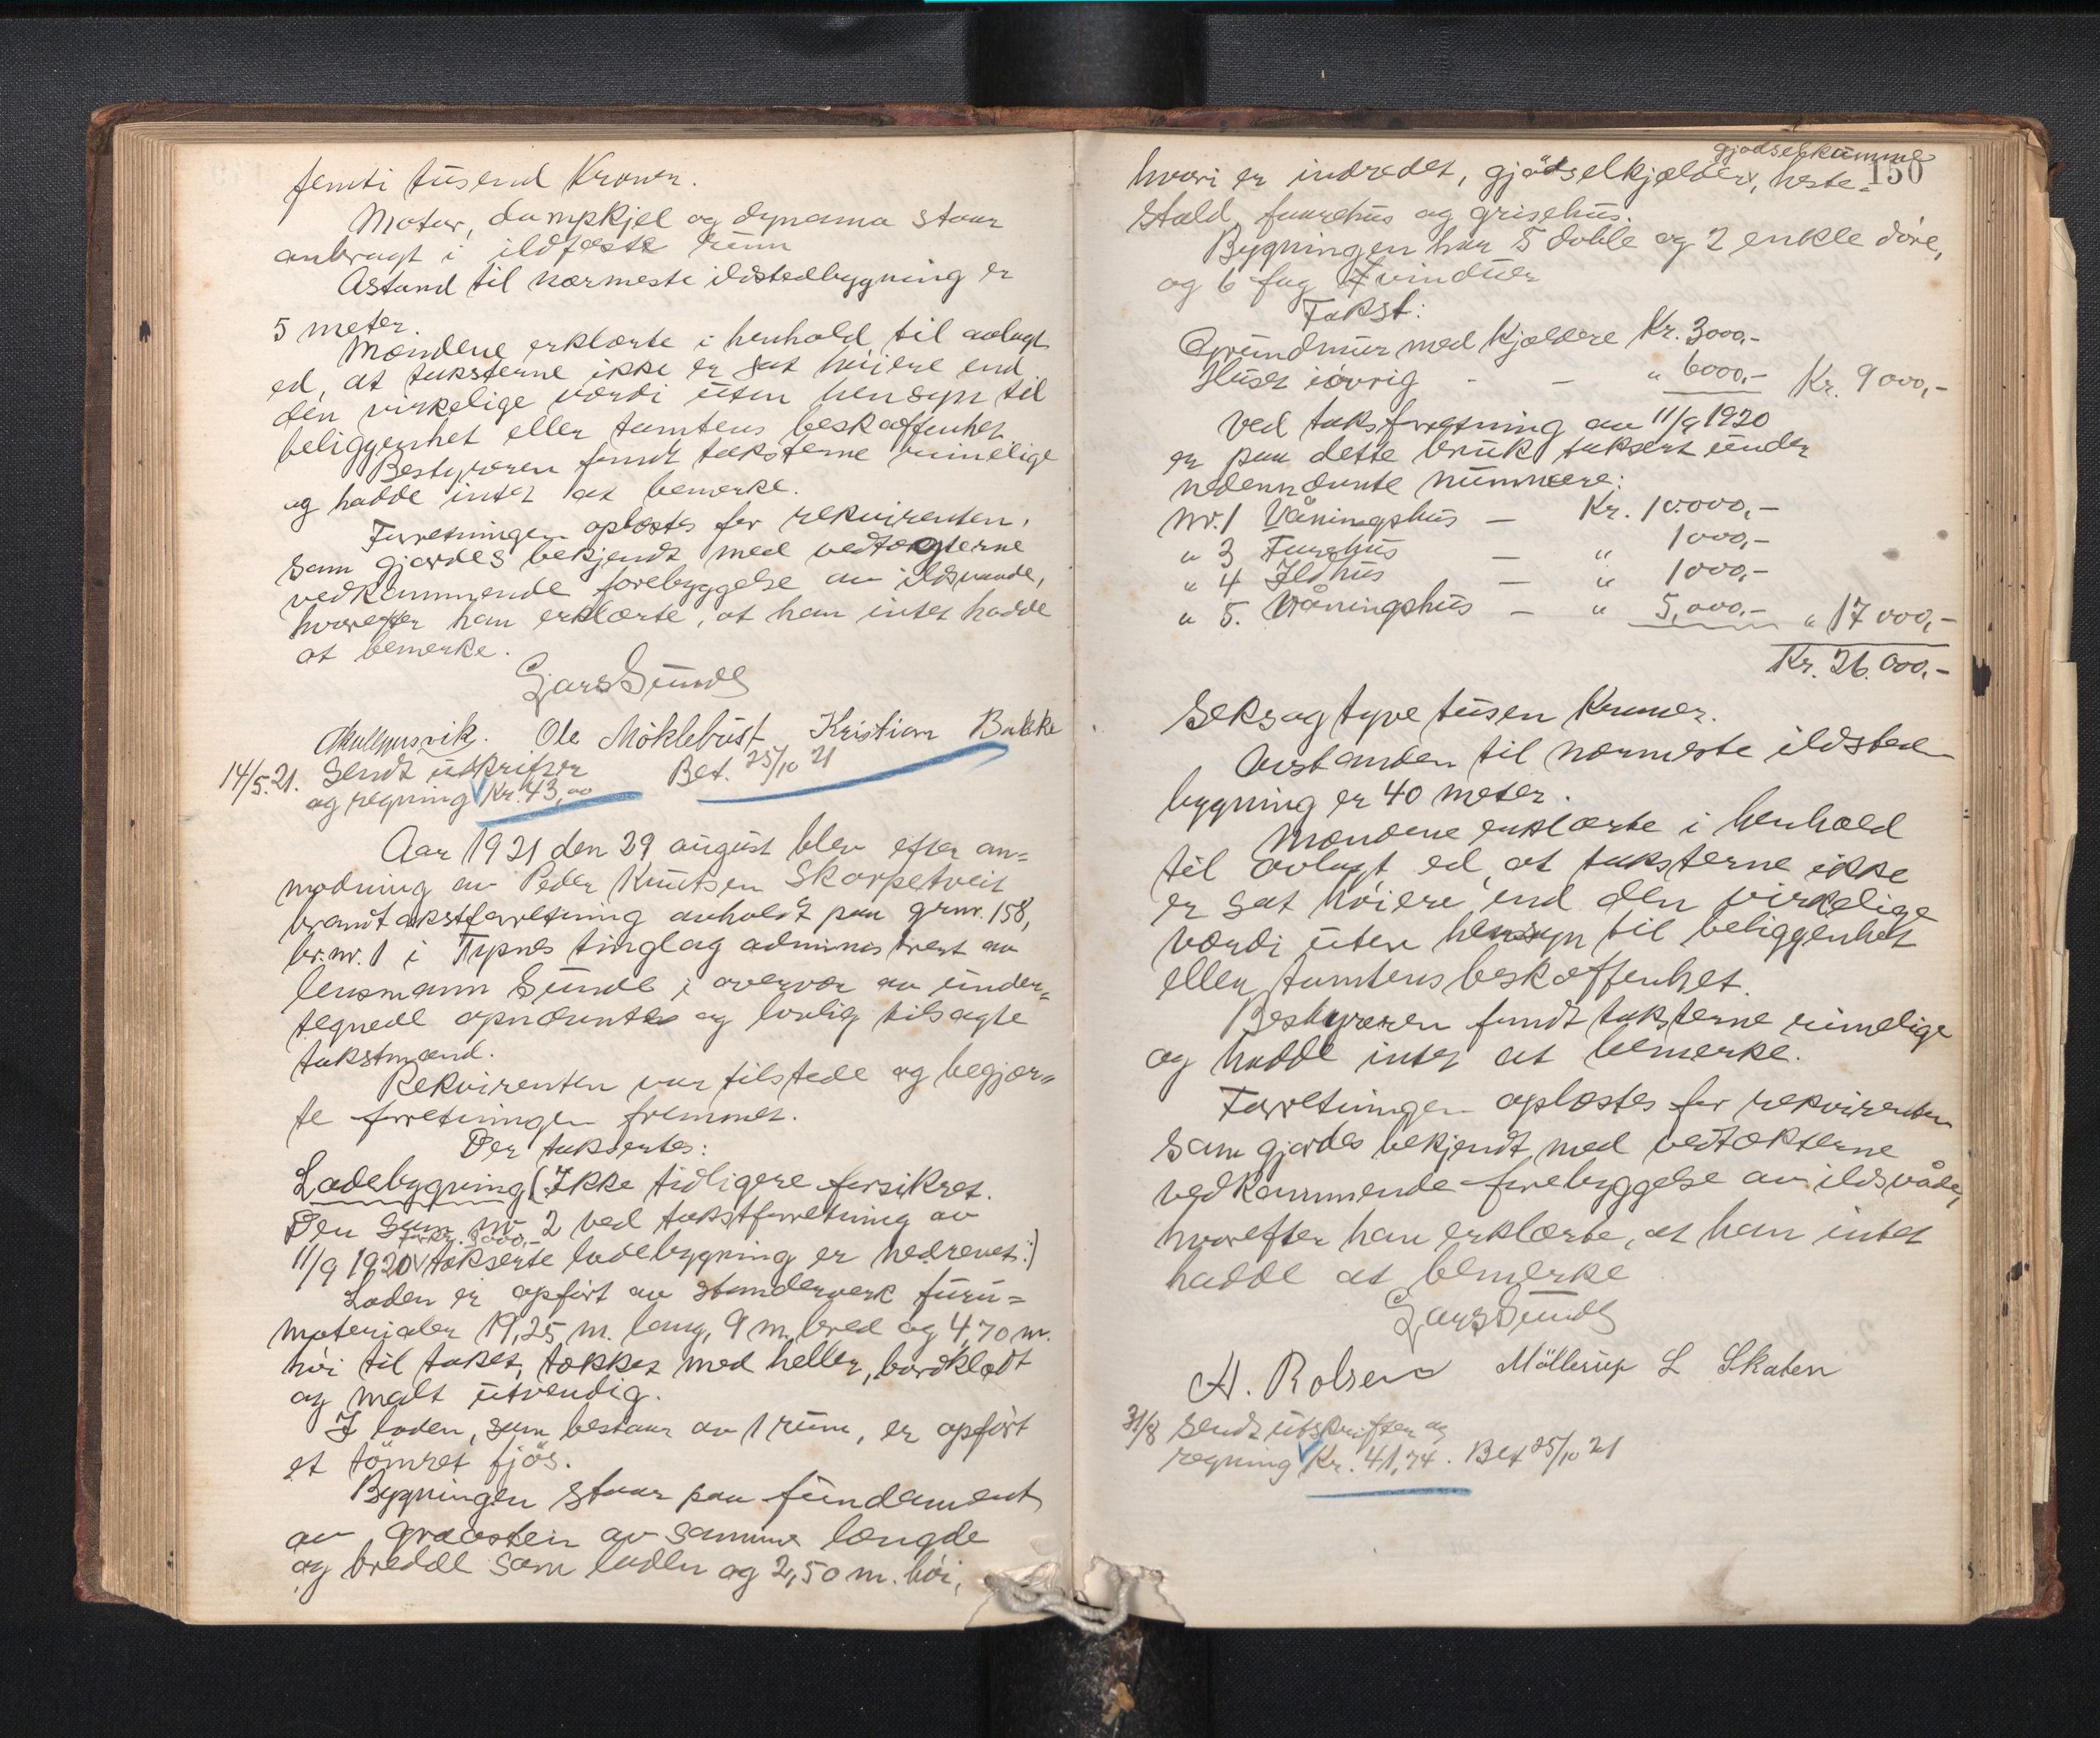 femti tusend Kroner.
Motor, dampkjel og dynamo staar
anbragt i ildfaste rum
Astand til nærmeste ildstedbygning er
5 meter.
Mændene erklærte i henhold til avlagt
ed, at taksterne ikke er sat höiere end
den virkelige værdi uten hensyn til
beliggenhet eller tomtens beskaffenhet.
Bestyreren fandt taksterne rimelige
og hadde intet at bemerke.
Forretningen oplæstes for rekvirenten,
som gjordes bekjendt med vedtægterne
vedkommende forebyggelse av ildsvaade,
hvorefter han erklærte, at han intet hadde
at bemerke.
Lars Sunde
Ole Möklebust Kristian Bakke
14/5.21. Sendt utskrifter Bet. 25/10 21
og regning Kr. 43,00
Aar 1921 den 29 august blev efter an=
modning av Peder Knutsen Skorpetveit
brandtakstforretning avholdt paa grnr. 158,
br.nr. 1 i Tysnes tinglag administrert av
lensmann Sunde i overvær av under=
tegnede opnævnte og lovlig tilsagte
takstmænd.
Rekvirenten var tilstede og begjær=
te forretningen fremmet.
Der taksertes:
Ladebygning (Ikke tidligere forsikret.
Den som nr. 2 ved takstforretning av
for kr. 3000,-
11/9 1920 takserte ladebygning er nedrevet:)
Laden er opfört av stenderverk furu=
materialer 19,25 m. lang, 9 m. bred og 4,70 m.
höi til taket, tækket med heller, bordklædt
og malt utvendig.
I laden, som bestaar av 1 rum, er opfört
et tömret fjös.
Bygningen staar paa fundament
av graasten av samme længde
og bredde som laden og 2,50 m. höi,
150
gjödselkumme
hvori er indredet, gjödselkjælder, heste=
stald, faarehus og grisehus.
Bygningen har 5 doble og 2 enkle döre,
og 6 fag vinduer
Takst:
Grundmur med kjeldere Kr. 3000,-
Huset iövrig - - " 6000,- Kr. 9000,-
Ved taksforretning av 11/9 1920
er paa dette bruk taksert under
nedennævnte nummere:
Nr. 1 Våningshus - Kr. 10.000,-
" 3 Faarehus - " 1000,-
" 4 Ildhus - " 1000,-
" 5. Våningshus - " 5,000,- " 17 000,-
Kr. 26.000,-
Seks og tyve tusen Kroner.
Avstanden til nærmeste ildsted
bygning er 40 meter.
Mændene erklærte i henhold
til avlagt ed, at taksterne ikke
er sat höiere end den virkelige
værdi uten hensyn til beliggenhet
eller tomtens beskaffenhet.
Bestyreren fandt taksterne rimelige
og hadde intet at bemerke.
Forretningen oplæstes for rekvirenten
som gjordes bekjendt med vedtækterne
vedkommende forebyggelse av ildsvåde,
hvorefter han erklærte, at han intet
hadde at bemerke
Lars Sunde
A. Rolsen Möllerup L Skaten
31/8 sendt utskriften og
regning Kr. 41,74. Bet 25/10 21